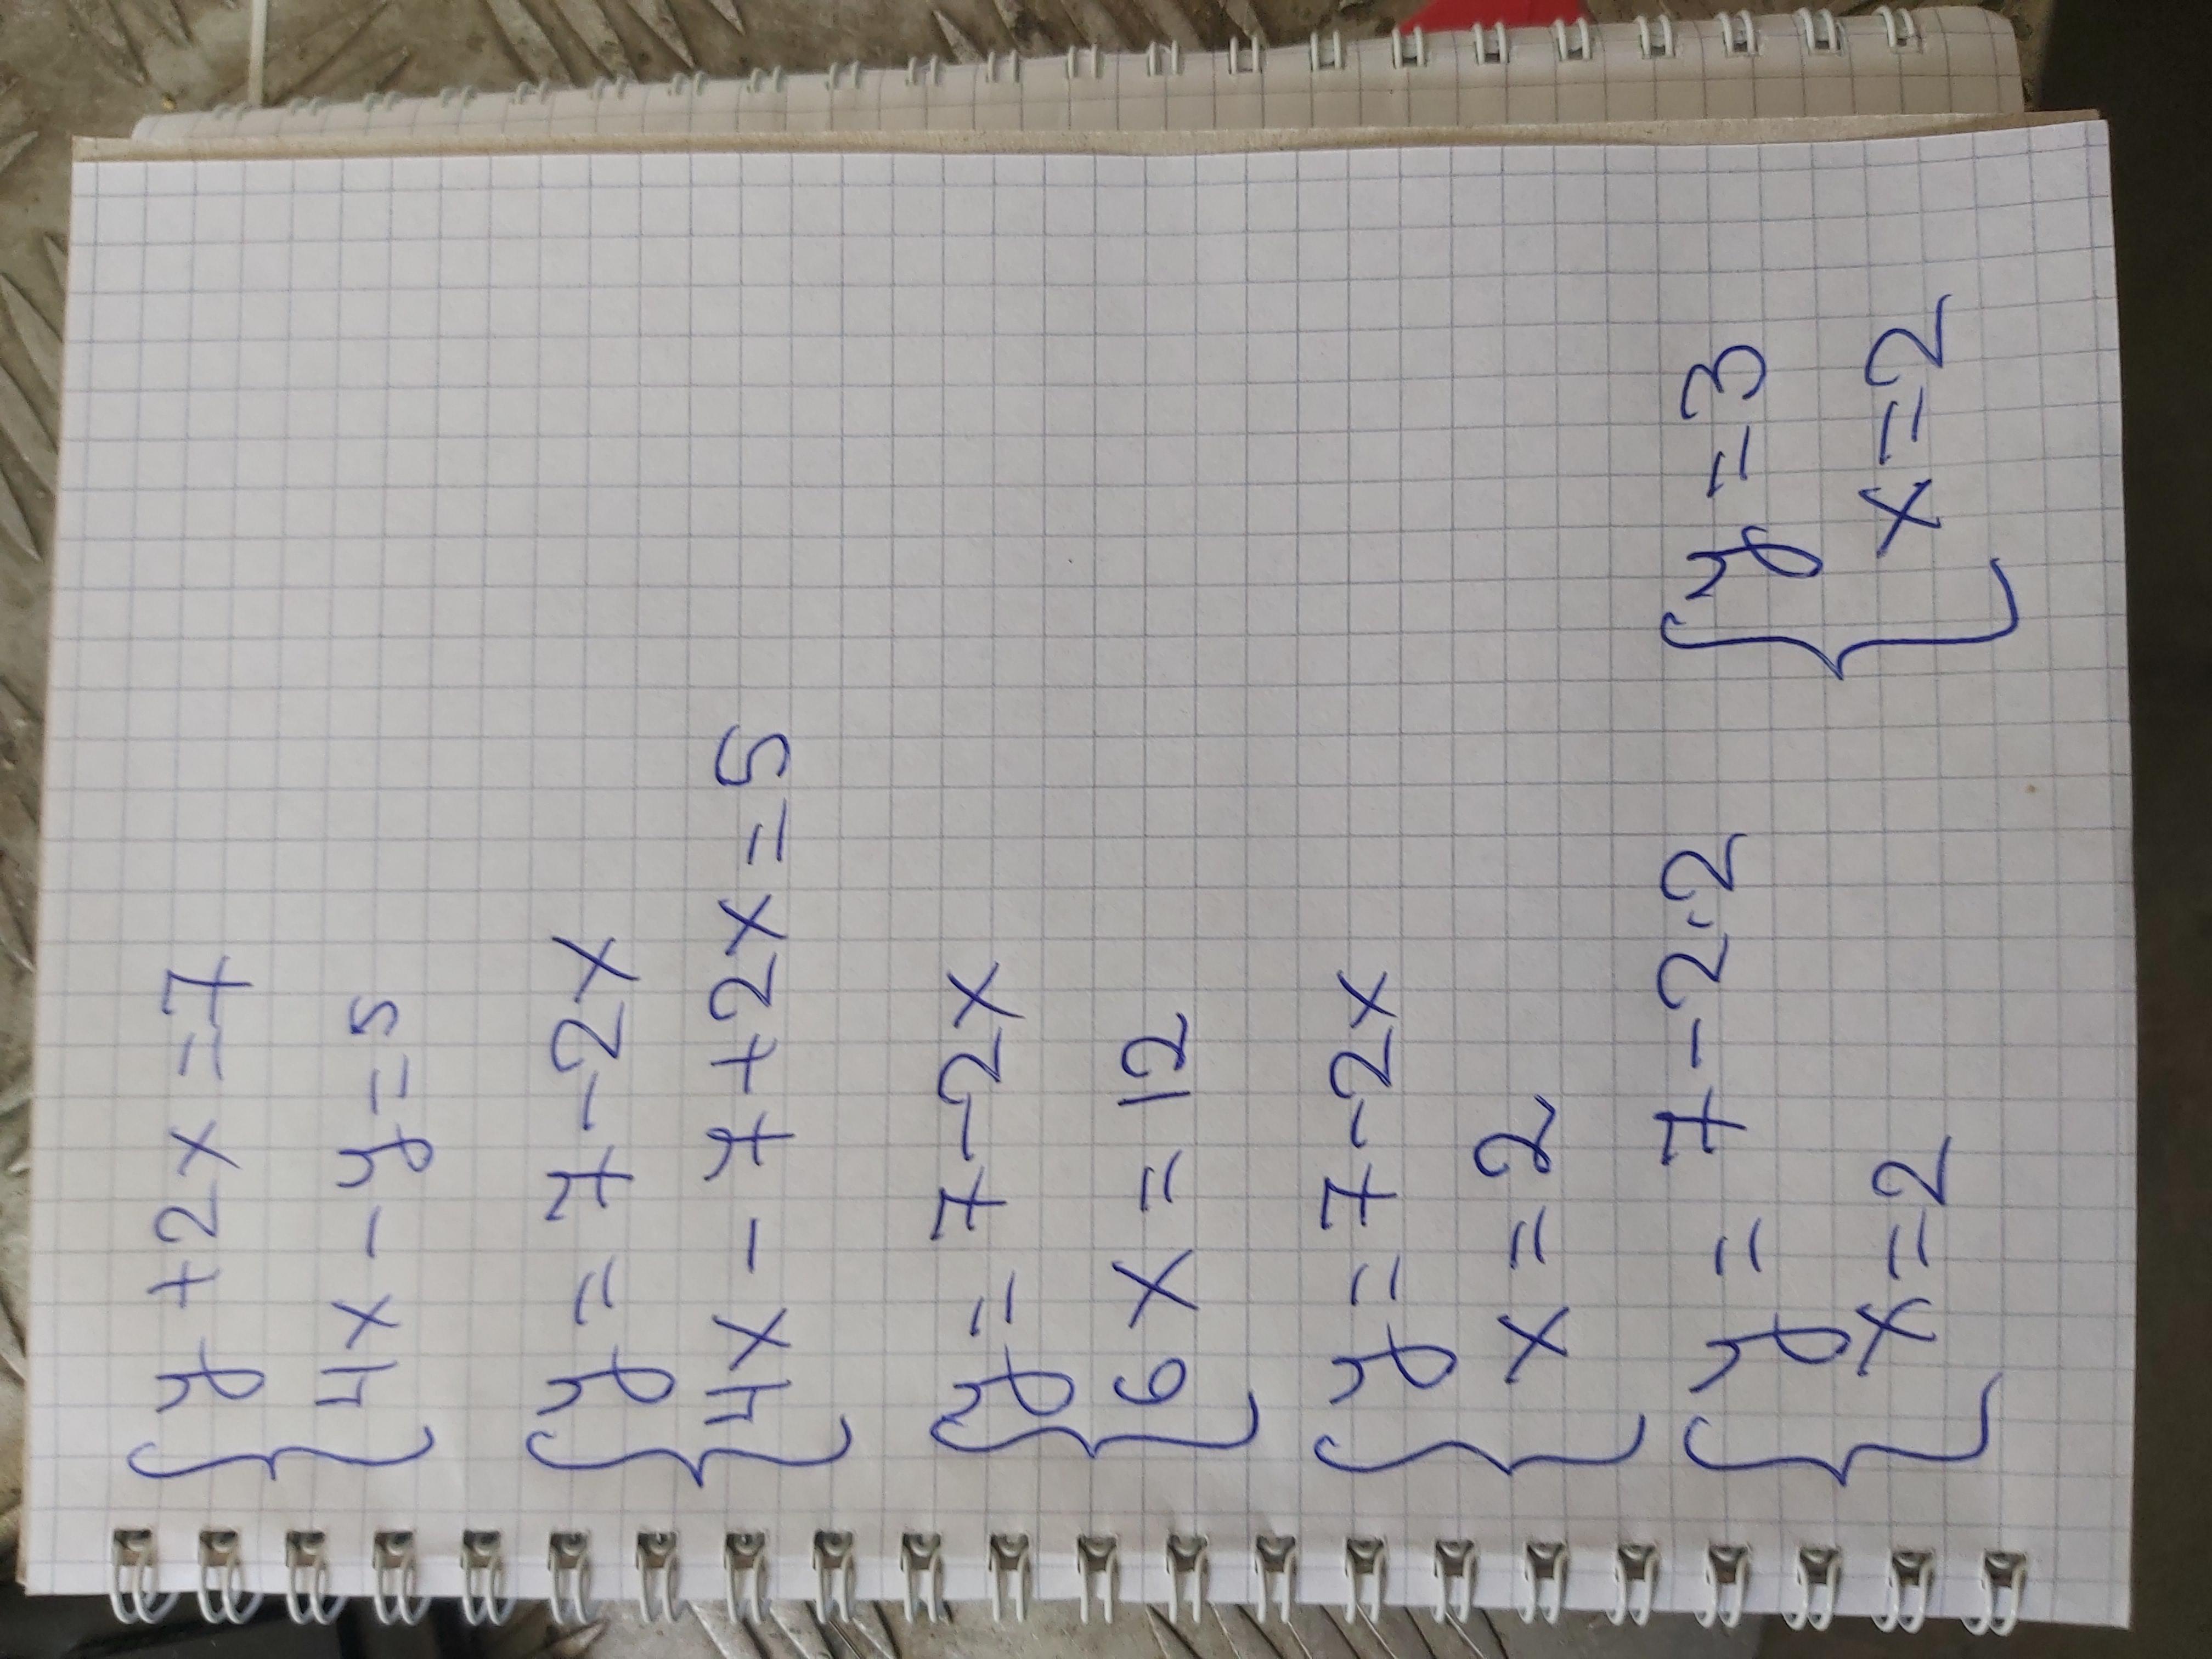 y + 2x = 7
4x - y = 5
y = 7 - 2x
4x - 7 + 2x = 5
y = 7 - 2x
6x = 12
y = 7 - 2x
x = 2
y = 7 - 2·2
x = 2
y = 3
x = 2